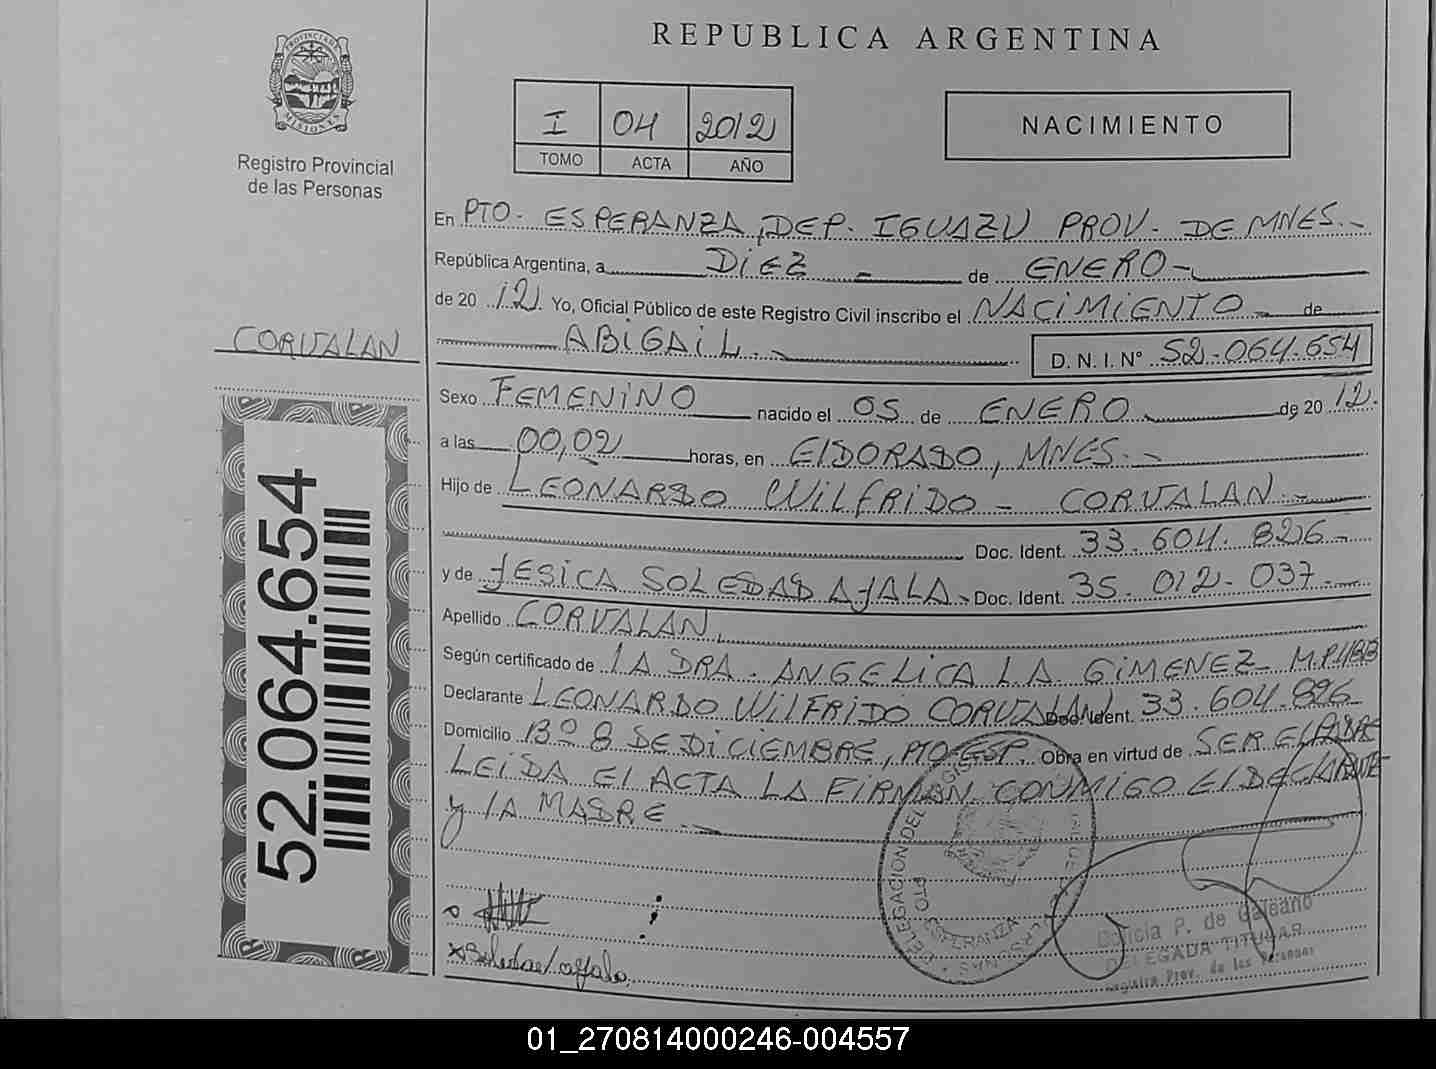 REPUBLICA ARGENTINA
PROVINCIA DE
MISIONES
Registro Provincial
de las Personas
I 04 2012
TOMO ACTA AÑO
NACIMIENTO
En PTO. ESPERANZA, DEP. IGUAZU PROV. DE MNES.-
República Argentina, a DIEZ - de ENERO-
de 20 12. Yo, Oficial Público de este Registro Civil inscribo el NACIMIENTO - de
CORVALAN
ABIGAIL.-
D. N. I. N° 52.064.654
Sexo FEMENINO nacido el 05 de ENERO de 20 12.
a las 00,02 horas, en ElDORADO, MNES.-
Hijo de LEONARDO WILFRIDO - CORVALAN.-
Doc. Ident. 33.604.826-
y de JESICA SOLEDAD AYALA- Doc. Ident. 35.012.037.-
Apellido CORVALAN,
Según certificado de lA DRA. ANGELICA L.A. GIMENEZ-
Declarante LEONARDO WILFRIDO CORVALAN Doc. Ident. 33.604.826-
Domicilio Bº 8 DE DICIEMBRE, PTO ESP. Obra en virtud de SER El PADRE
LEIDA El ACTA LA FIRMAN CONMIGO El DECLARANTE-
y lA MADRE.-
52.064.654
DELEGACION DEL REGIS
PTO ESPERANZA
P. de Galeano
DELEGADA TITULAR
Registro Prov. de las Personas
x Soledad Ayala
01_270814000246-004557